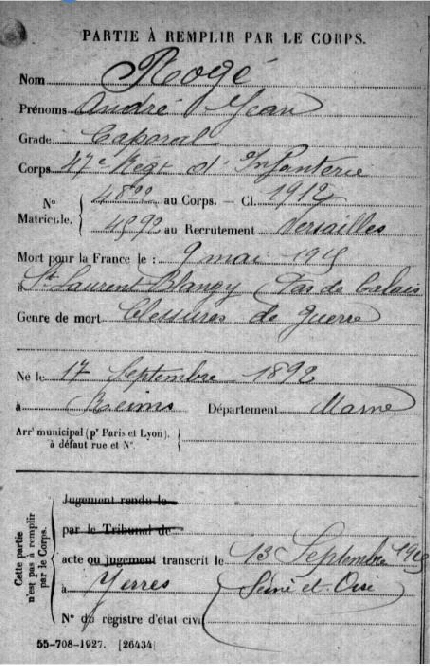 PARTIE À REMPLIR PAR LE CORPS.
Nom Rogé
Prénoms André Jean
Grade Caporal
Corps 47e Régt d'Infanterie
N° Matricule. 4800 au Corps. — Cl. 1912
4892 au Recrutement Versailles
Mort pour la France le : 9 mai 1915
à St Laurent Blangy (Pas de Calais
Genre de mort blessures de guerre
Né le 17 Septembre 1892
à Reims Département Marne
Arrt municipal (pr Paris et Lyon),
à défaut rue et N°.
Cette partie n'est pas à remplir par le Corps.
Jugement rendu le
par le Tribunal de
acte ou jugement transcrit le 13 Septembre 1915
à Yerres (Seine et Oise
N° du registre d'état civil
55-708-1927. [26434]